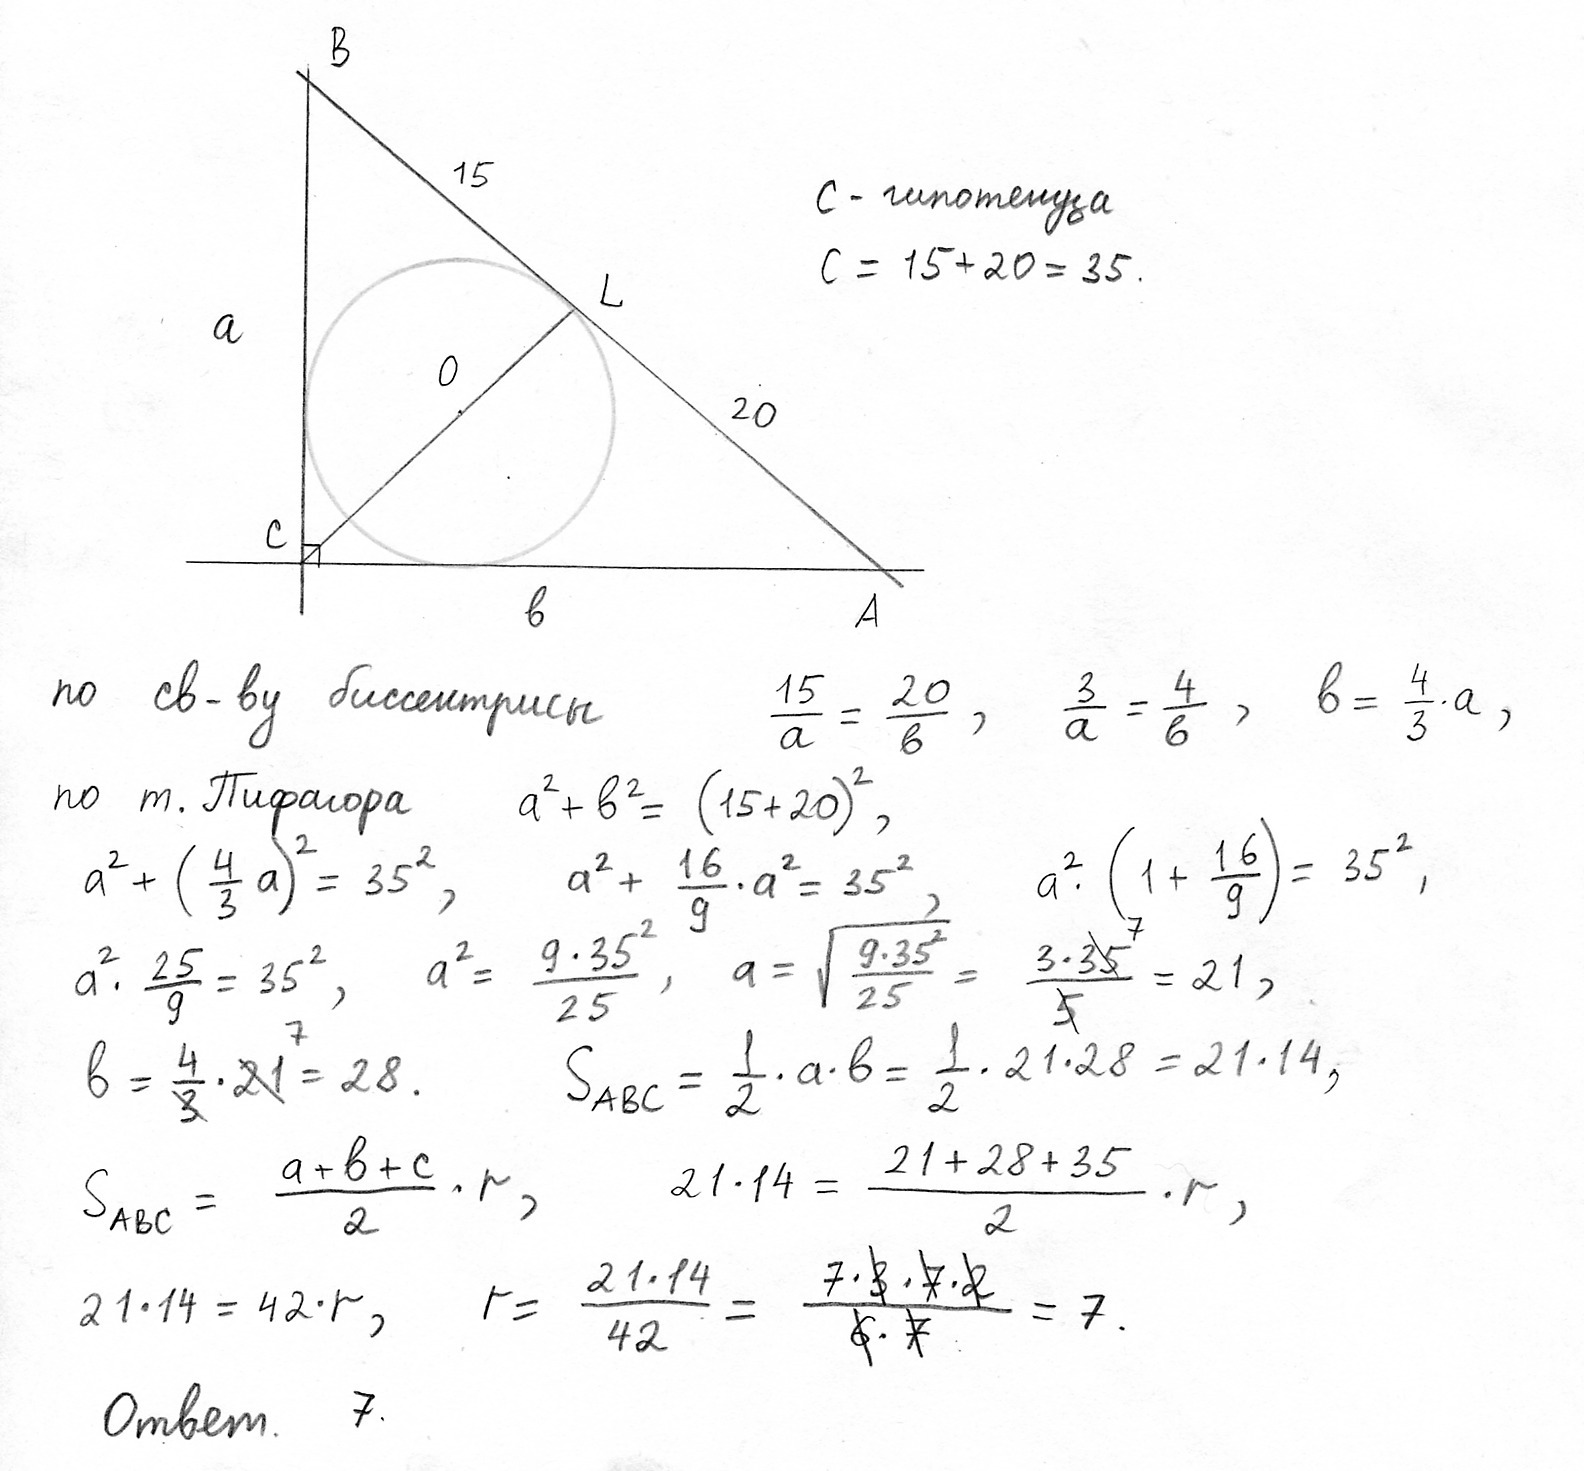 B
15
c - гипотенуза
c = 15+20 = 35.
L
a
O
20
C
в
A
по св-ву биссектрисы 15/a = 20/в, 3/a = 4/в, в = 4/3·a,
по т. Пифагора a²+в² = (15+20)²,
a² + (4/3 a)² = 35², a² + 16/9·a² = 35², a²·(1 + 16/9) = 35²,
a²·25/9 = 35², a² = 9·35²/25, a = √(9·35²/25) = 3·35/5 7 = 21,
в = 4/3·21 7 = 28. S_ABC = 1/2·a·в = 1/2·21·28 = 21·14,
S_ABC = (a+в+c)/2·r, 21·14 = (21+28+35)/2·r,
21·14 = 42·r, r = 21·14/42 = 7·3·7·2/(6·7) = 7.
Ответ. 7.